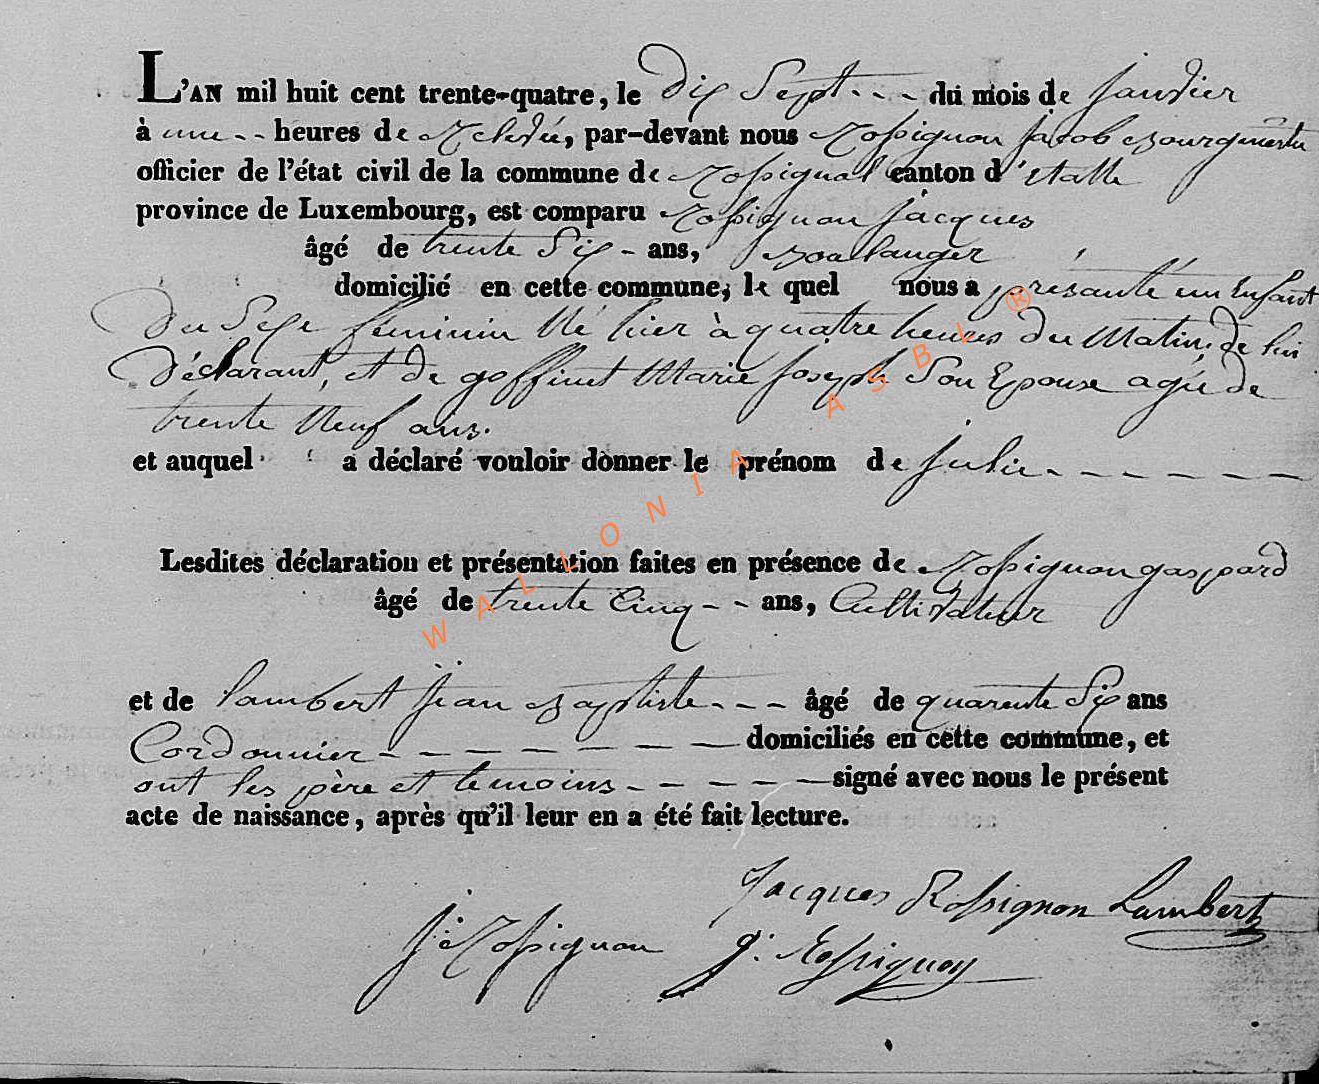 L'AN mil huit cent trente-quatre, le dix Sept - - - du mois de janvier
à une - - heures de Relevée, par-devant nous Rossignon jacob Bourgmestre
officier de l'état civil de la commune de Rossignol canton d'étalle
province de Luxembourg, est comparu Rossignon jacques
âgé de trente Six - ans, Boulanger
domicilié en cette commune, le quel nous a présanté un Enfant
Du Sexe feminin Né hier à quatre heures du Matin, de lui
Déclarant, et de goffinet Marie joseph Son Epouse agée de
trente Neuf ans.
et auquel a déclaré vouloir donner le prénom de julie - - - - - -
Lesdites déclaration et présentation faites en présence de Rossignon gaspard
âgé de trente Cinq - - ans, Cultivateur
et de lambert jean Baptiste - - - âgé de quarente Six ans
Cordonnier - - - - - - - - domiciliés en cette commune, et
ont les père et temoins - - - - - signé avec nous le présent
acte de naissance, après qu'il leur en a été fait lecture.
Jacques Rossignon Lambert
j: Rossignon g: Rossignon
WALLONIA ASBL ®